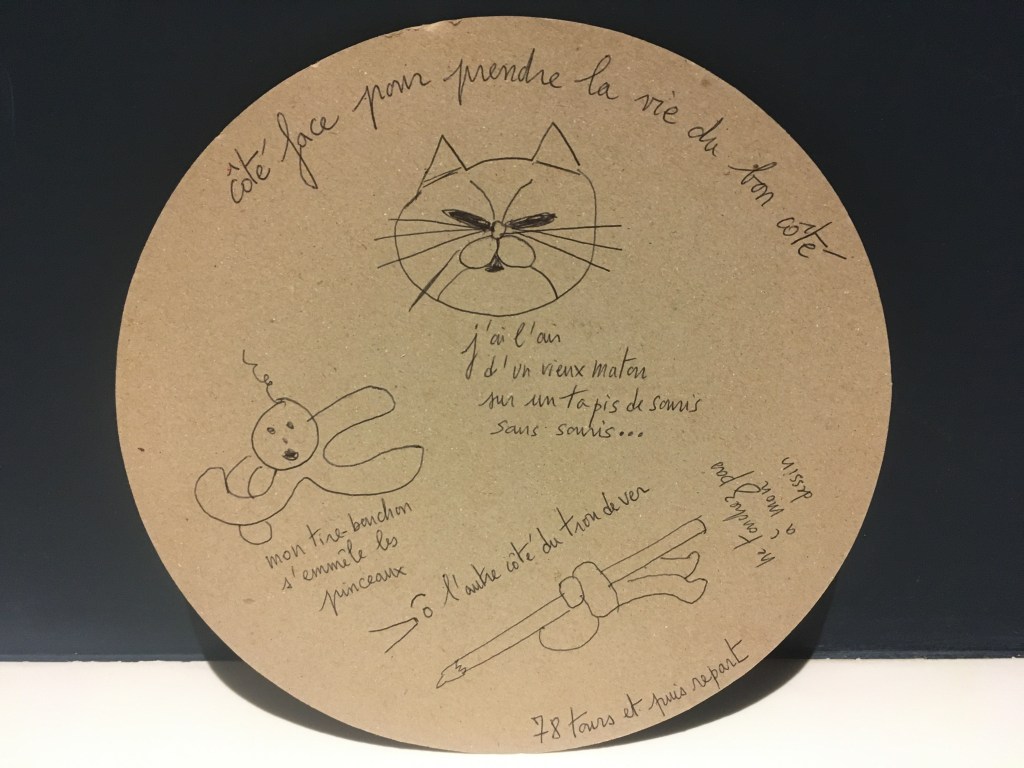 côté face pour prendre la vie du bon côté
j'ai l'air
d'un vieux maton
sur un tapis de souris
sans souris...
mon tire-bouchon
s'emmêle les
pinceaux
ô l'autre côté du trou de ver
ne touchez pas
à mon
dessin
78 tours et puis repart